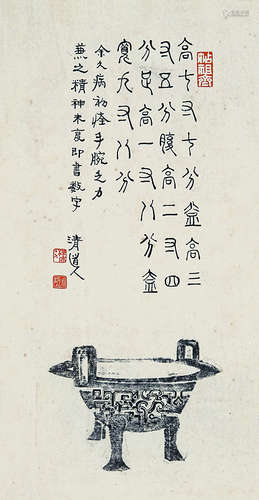 高七寸七分盇高三
寸五分腹高二寸四
分足高一寸八分盇
寬九寸八分
余久病初痊手腕乏力
兼之精神未复即書數字
清道人